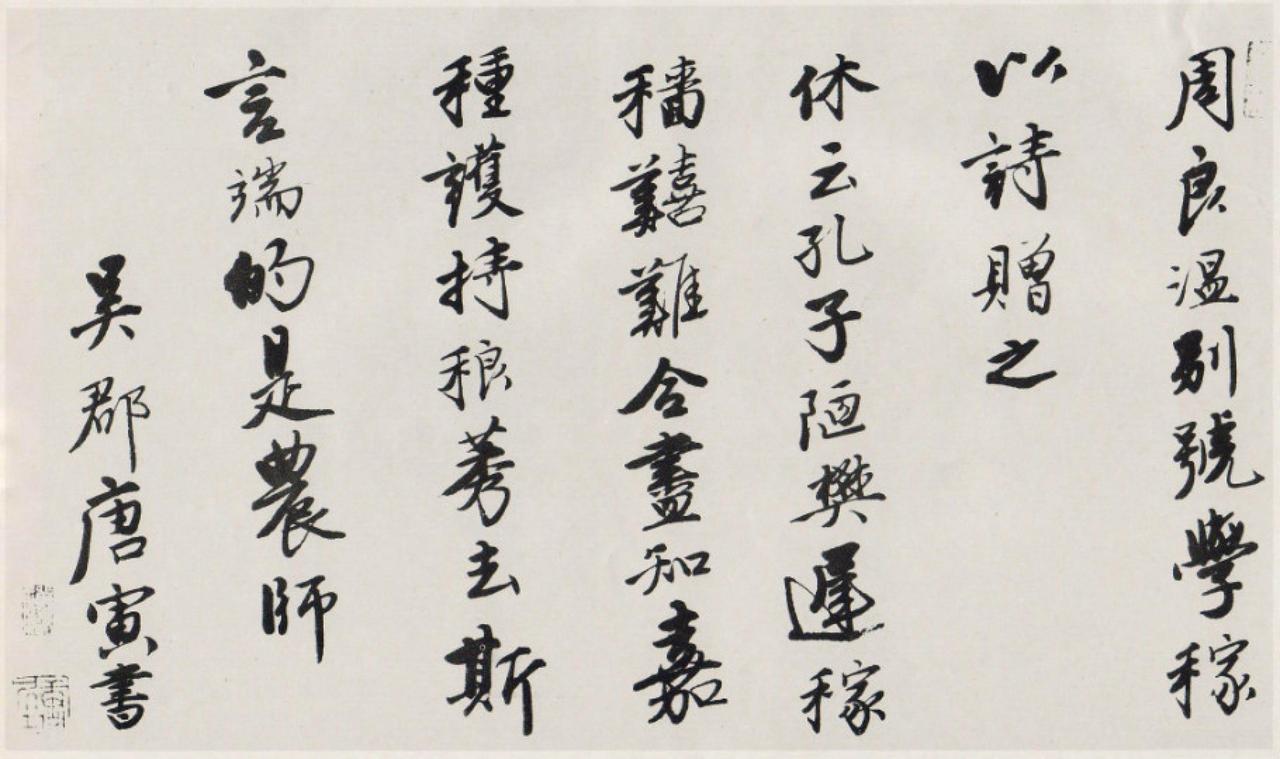 周良温別號學稼
以詩贈之
休云孔子陋樊遲稼
穡囏難合盡知嘉
種護持稂莠去斯
言端的是農師
吳郡唐寅書